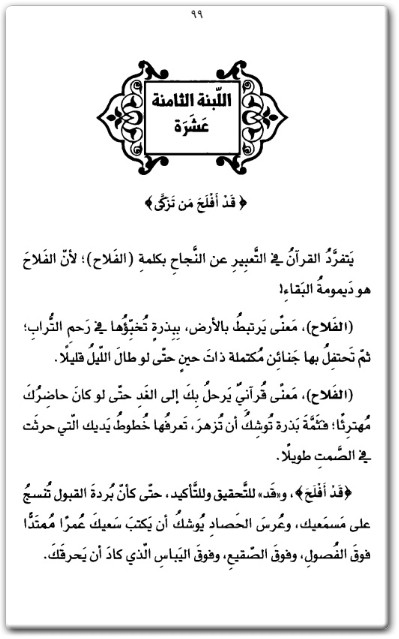 ٩٩
اللّبنة الثامنة
عَشَرَة
﴿ قَدْ أَفْلَحَ مَن تَزَكَّى ﴾
يَتفرَّدُ القرآنُ في التَّعبيرِ عن النَّجاحِ بكلمةِ (الفَلاح)؛ لأنّ الفَلاحَ
هو دَيمومةُ البَقاء!
(الفَلاح)، مَعنًى يَرتبطُ بالأرض، ببِذرةٍ تُخبِّؤُها في رَحمِ التُّراب؛
ثمّ تَحتفِلُ بها جَنائِن مُكتملة ذاتَ حينٍ حتّى لو طالَ اللّيلُ قليلًا.
(الفَلاح)، مَعنًى قُرآنيّ يَرحلُ بكَ إلى الغَدِ حتّى لو كانَ حاضِرُكَ
مُهترِئًا؛ فثَمَّةَ بَذرة تُوشِكُ أن تُزهرَ، تَعرفُها خُطوطُ يَديك الّتي حرثَت
في الصَّمتِ طويلًا.
﴿قَدْ أَفْلَحَ﴾، و«قَد» للتَّحقيق وللتَّأكيد، حتّى كأنّ بُردةَ القبول تُنسجُ
على مَسمَعيك، وعُرسَ الحَصادِ يُوشكُ أن يَكتبَ سَعيكَ عُمرًا مُمتَدًّا
فوقَ الفُصولِ، وفوقَ الصَّقيعِ، وفوقَ اليَباسِ الّذي كادَ أن يَحرقَكَ.